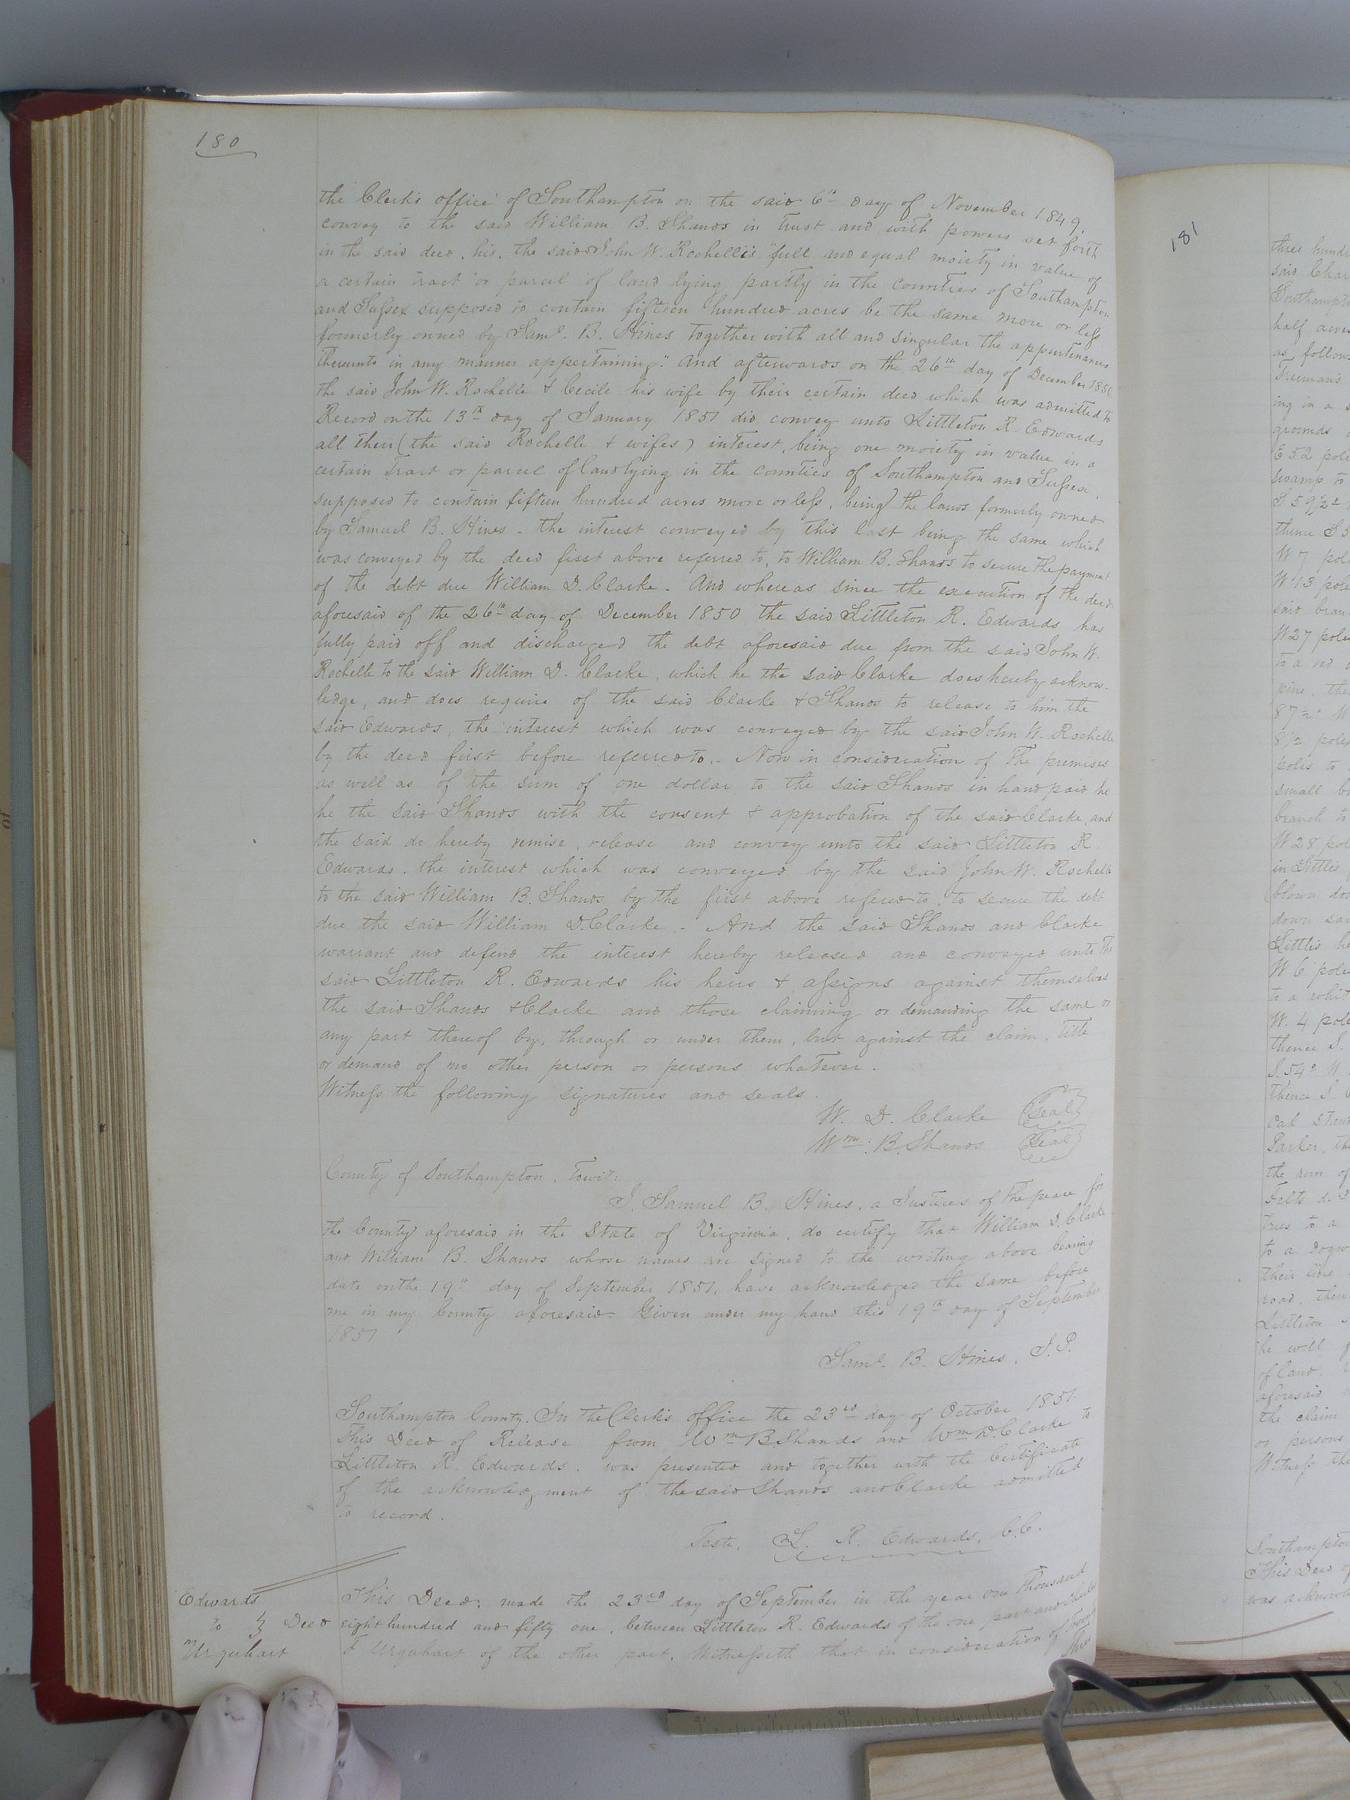 180
the Clerk's office of Southampton on the said 6th day of November 1849,
convey to the said William B. Shands in trust and with powers set forth
in the said deed, his, the said John W. Rochelle's "full and equal moiety in value of
a certain tract or parcel of land lying partly in the Counties of Southampton
and Sussex supposed to contain fifteen hundred acres be the same more or less
formerly owned by Saml. B. Hines together with all and singular the appurtenances
thereunto in any manner appertaining." And afterwards on the 26th day of December 1850
the said John W. Rochelle & Cecile his wife by their certain deed which was admitted to
Record on the 13th day of January 1851 did convey unto Littleton R Edwards
all their (the said Rochelle & wifes) interest, being one moiety in value in a
certain tract or parcel of land lying in the counties of Southampton and Sussex,
supposed to contain fifteen hundred acres more or less, being the lands formerly owned
by Samuel B. Hines. the interest conveyed by this last being the same which
was conveyed by the deed first above referred to, to William B. Shands to secure the payment
of the debt due William D. Clarke. And whereas since the execution of the deed
aforesaid of the 26th day of December 1850 the said Littleton R. Edwards has
fully paid off and discharged the debt aforesaid due from the said John W.
Rochelle to the said William D. Clarke, which he the said Clarke does hereby acknow-
ledge, and does require of the said Clarke & Shands to release to him the
said Edwards, the interest which was conveyed by the said John W. Rochelle
by the deed first before referred to. Now in consideration of the premises
as well as of the sum of one dollar to the said Shands in hand paid he
he the said Shands with the consent & approbation of the said Clarke, and
the said do hereby remise, release and convey unto the said Littleton R
Edwards, the interest which was conveyed by the said John W. Rochelle
to the said William B. Shands by the first above referred to, to secure the debt
due the said William D. Clarke. And the said Shands and Clarke
warrant and defend the interest hereby released and conveyed unto the
said Littleton R. Edwards his heirs & assigns against themselves
the said Shands & Clarke and those claiming or demanding the same or
any part thereof by, through or under them, but against the claim, title
or demand of no other person or persons whatever.
Witness the following signatures and seals.
W. D. Clarke (Seal)
Wm. B. Shands (Seal)
County of Southampton, towit:
I, Samuel B. Hines, a Justices of the peace for
the County aforesaid in the State of Virginia, do certify that William D. Clarke
and William B. Shands whose names are signed to the writing above bearing
date on the 19th day of September 1851, have acknowledged the same before
me in my County aforesaid. Given under my hand this 19th day of September
1851
Saml. B. Hines, J. P.
Southampton County. In the Clerk's office the 23rd day of October 1851
This Deed of Release from Wm B Shands and Wm D. Clarke to
Littleton R. Edwards, was presented and together with the Certificate
of the acknowledgment of the said Shands and Clarke admitted
to record.
Teste, L. R. Edwards, C. C.
Edwards
to } Deed
Urquhart
This Deed: made the 23rd day of September in the year one thousand
eight hundred and fifty one, between Littleton R. Edwards of the one part and
Urquhart of the other part, Witnesseth that in consideration of
181
three
said
Southampton
half
as follows
Freeman's
ing in a
grounds
E 52 poles
swamp to
thence
W 7
W 13 pole
said
W 27 poles
to a red
pine, the
poles
poles to
small
branch to
W 28
in Littles
blown
down
Littles
W 6 poles
to a
W. 4 poles
thence S.
S. 54° W
thence S
oak
Parker,
the run of
trees to a
to a
their line
road, then
Littleton
he will
of land
aforesaid
the claim
or persons
Witness the
Southampton
This Deed
was